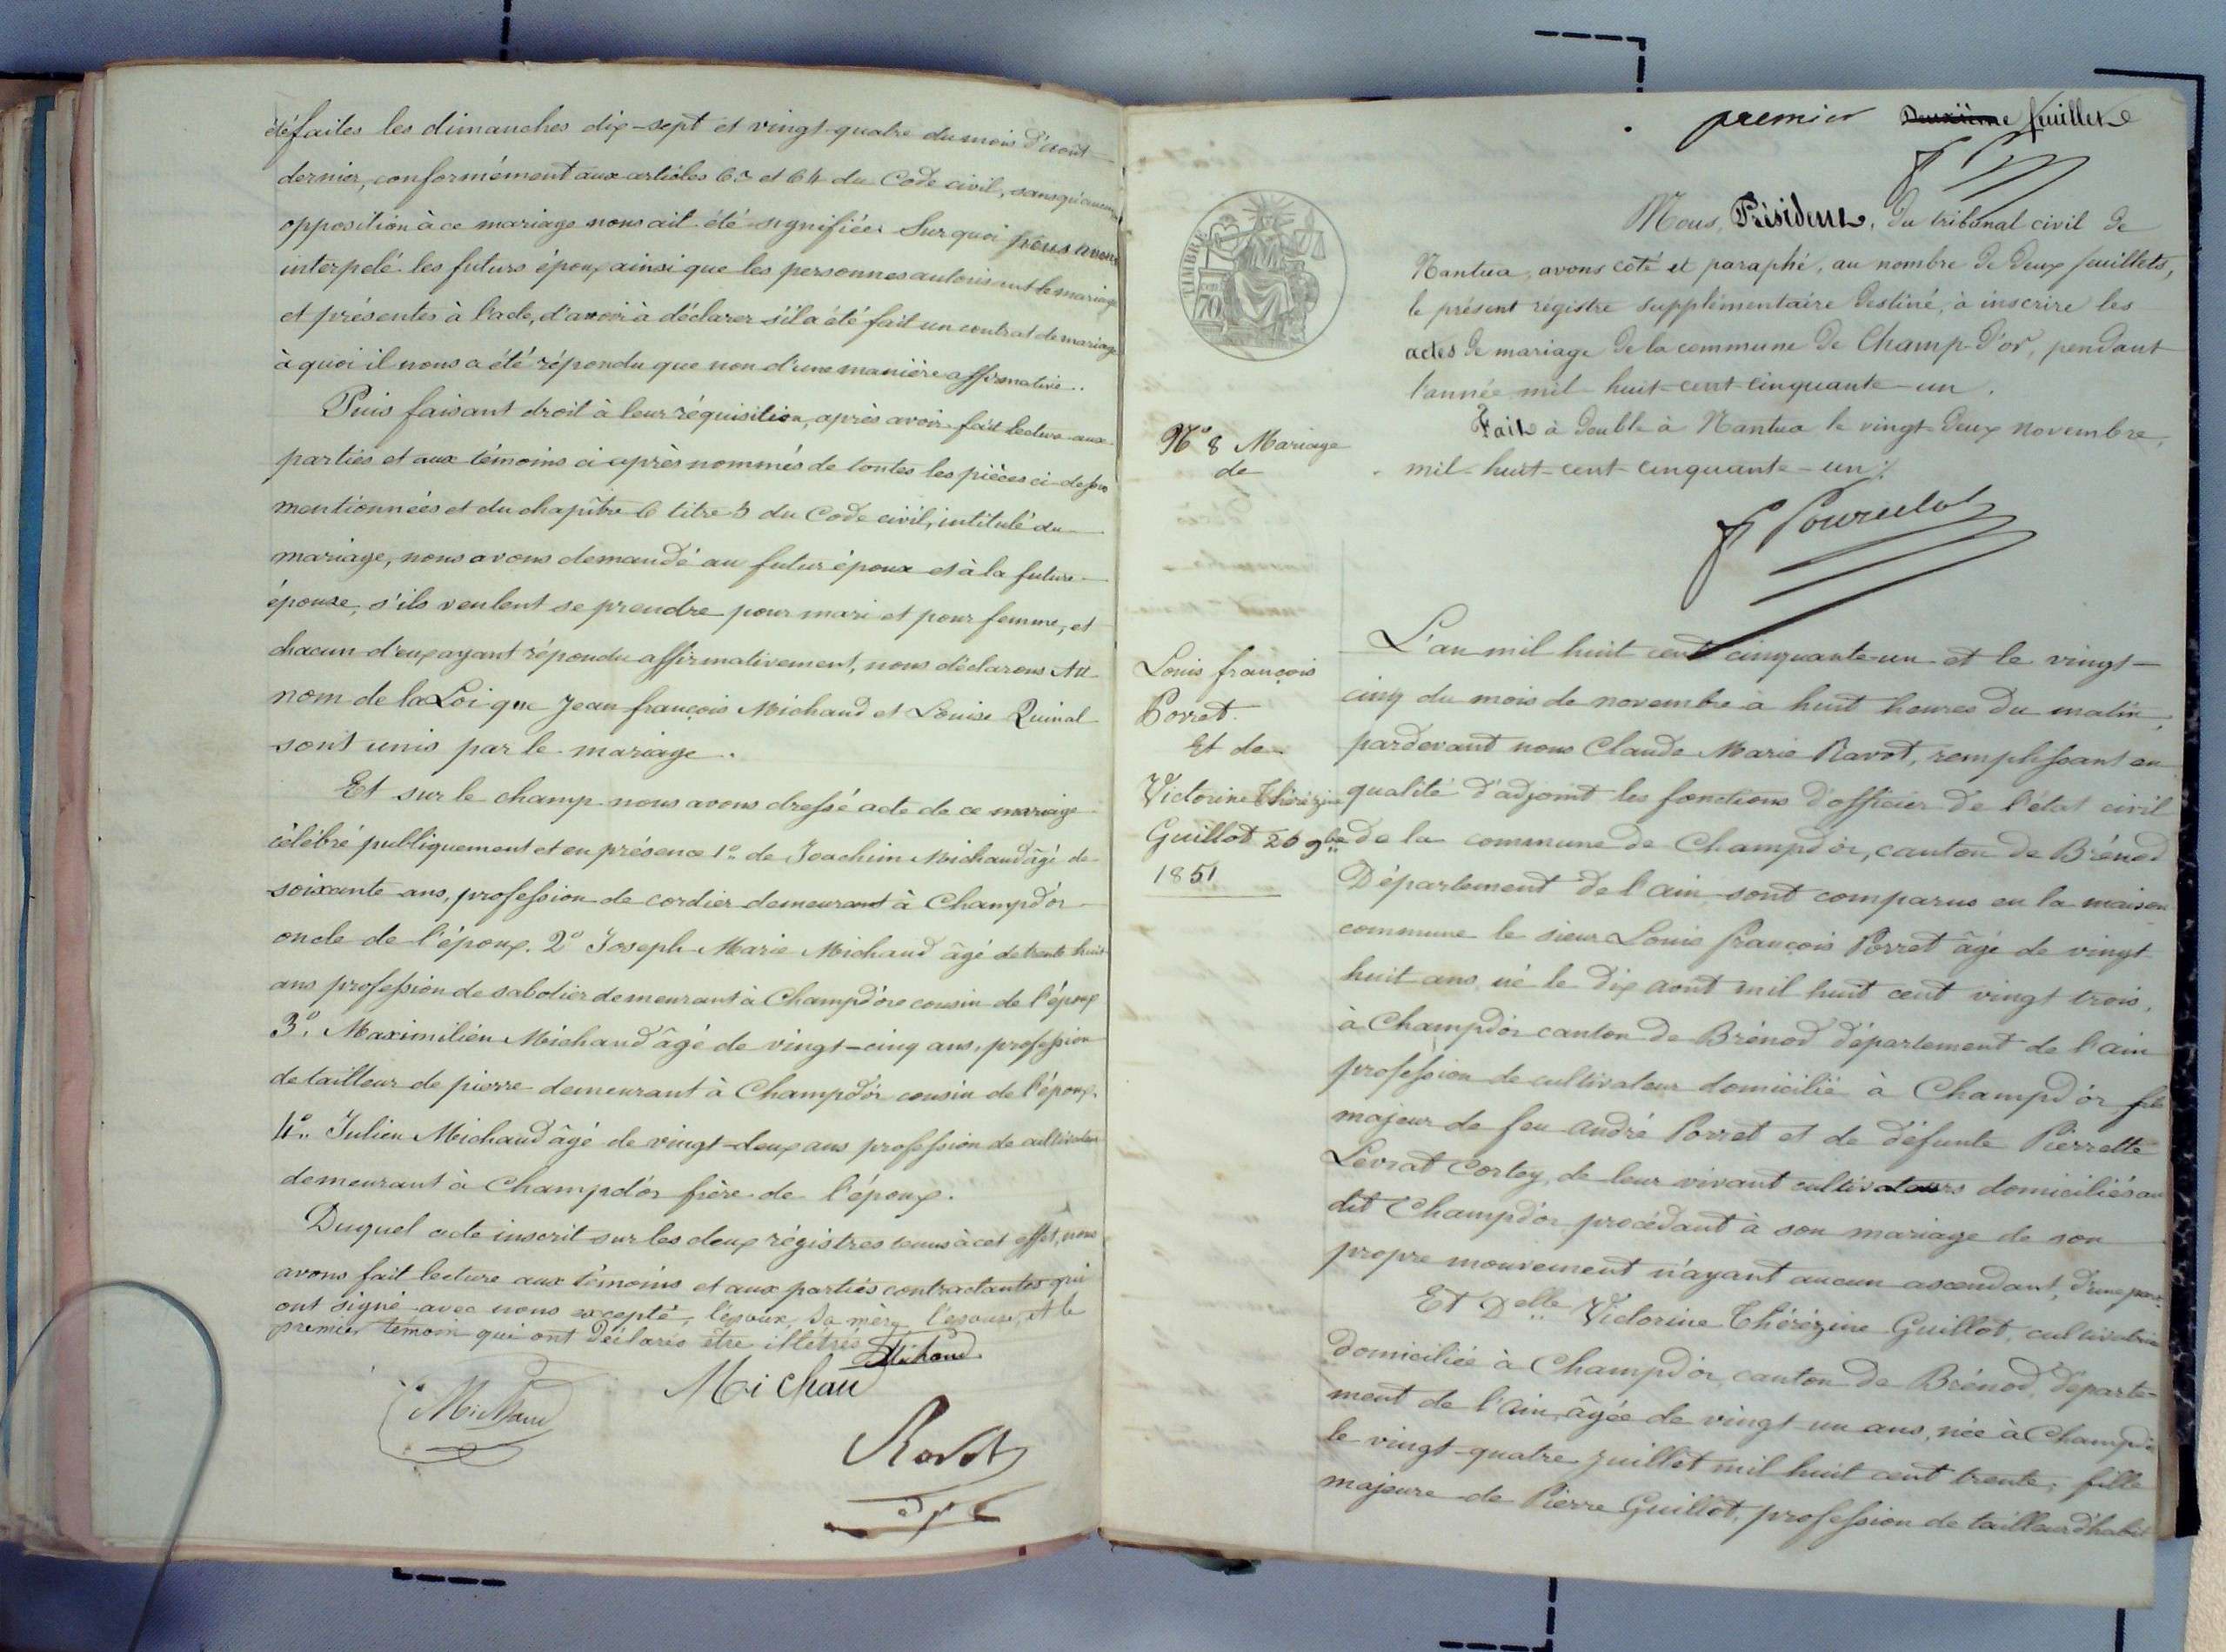 été faites les dimanches dix-sept et vingt-quatre du mois d'août
dernier, conformément aux articles 63 et 64 du Code civil, sans qu'aucune
opposition à ce mariage nous ait été signifiée. Sur quoi nous avons
interpelé les futurs époux ainsi que les personnes autorisant le mariage
et présentes à l'acte, d'avoir à déclarer s'il a été fait un contrat de mariage
à quoi il nous a été répondu que non d'une manière affirmative.
Puis faisant droit à leur réquisition, après avoir fait lecture aux
parties et aux témoins ci après nommés de toutes les pièces ci-dessus
mentionnées et du chapître 6 titre 5 du Code civil, intitulé du
mariage, nous avons demandé au futur époux et à la future
épouse, s'ils veulent se prendre pour mari et pour femme, et
chacun d'eux ayant répondu affirmativement, nous déclarons Au
nom de la Loi que Jean françois Michaud et Louise Quinal
sont unis par le mariage.
Et sur le champ nous avons dressé acte de ce mariage
célébré publiquement et en présence 1° de Joachim Michaud âgé de
soixante ans, profession de cordier demeurant à Champd'or
oncle de l'époux. 2° Joseph Marie Michaud âgé de trente huit
ans profession de sabotier demeurant à Champd'or cousin de l'époux
3° Maximilien Michaud âgé de vingt-cinq ans, profession
de tailleur de pierre demeurant à Champd'or cousin de l'époux.
4° Julien Michaud âgé de vingt-deux ans profession de cultivateur
demeurant à Champd'or frère de l'époux.
Duquel acte inscrit sur les deux régistres tenus à cet effet, nous
avons fait lecture aux témoins et aux parties contractantes qui
ont signé avec nous excepté, l'époux, sa mère l'épouse, et le
premier témoin qui ont déclaré être illétrés
Michaud
Michau
Michaud
Ravot
premier Deuxième feuillet
Nous, Président, du tribunal civil de
Nantua, avons côté et paraphé, au nombre de deux feuillets,
le présent régistre supplémentaire destiné, à inscrire les
actes de mariage de la commune de Champ-d'or, pendant
l'année mil-huit-cent-cinquante-un.
Fait à double à Nantua le vingt-deux novembre,
mil-huit-cent-cinquante-un
TIMBRE
N° 8 Mariage
de
Louis françois
Porret.
Et de
Victorine Thérézine
Guillot 26 9bre
1851
L'an mil huit cent cinquante-un et le vingt-
cinq du mois de novembre à huit heures du matin,
pardevant nous Claude Marie Ravot, remplissant en
qualité d'adjoint les fonctions d'officier de l'état civil
de la commune de Champd'or, canton de Brénod
Département de l'ain sont comparus en la maison
commune le sieur Louis françois Porret âgé de vingt
huit ans, né le dix août mil huit cent vingt trois,
à Champd'or canton de Brénod département de l'ain
profession de cultivateur domicilié à Champd'or fils
majeur de feu andré Porret et de défunte Pierrette
Levrat Cortey, de leur vivant cultivateurs domiciliés au
dit Champd'or procédant à son mariage de son
propre mouvement n'ayant aucun ascendant, d'une part.
Et Delle Victorine Thérézine Guillot, cultivatrice
domiciliée à Champd'or, canton de Brénod, départe-
ment de l'ain, âgée de vingt-un ans, née à Champd'or
le vingt-quatre juillet mil huit cent trente, fille
majeure de Pierre Guillot, profession de tailleur d'habit